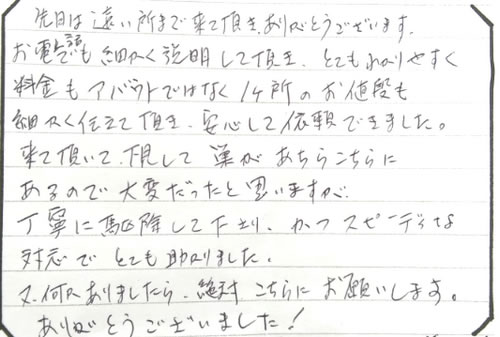 先日は遠い所まで来て頂き、ありがとうございます。
お電話も細かく説明して頂き、とてもわかりやすく
料金もアバウトではなく1ヶ所のお値段も
細かく仕立て頂き、安心して依頼できました。
来て頂いて、下見して 巣があちらこちらに
あるので大変だったと思いますが、
丁寧に駆除して下さり、かつスピーディな
対応でとても助かりました。
又、何かありましたら、絶対こちらにお願いします。
ありがとうございました!